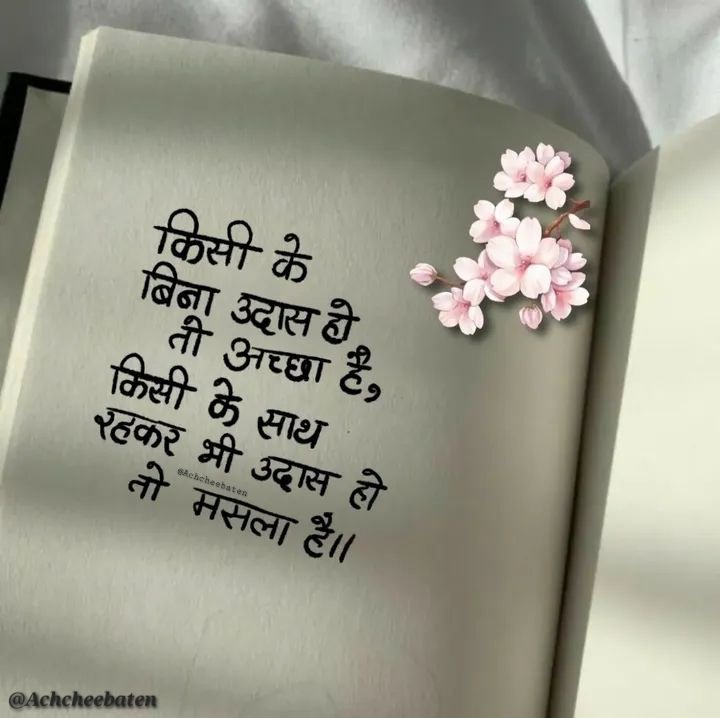 किसी के
बिना उदास हो
तो अच्छा है,
किसी के साथ
रहकर भी उदास हो
@Achcheebaten
तो मसला है।।
@Achcheebaten